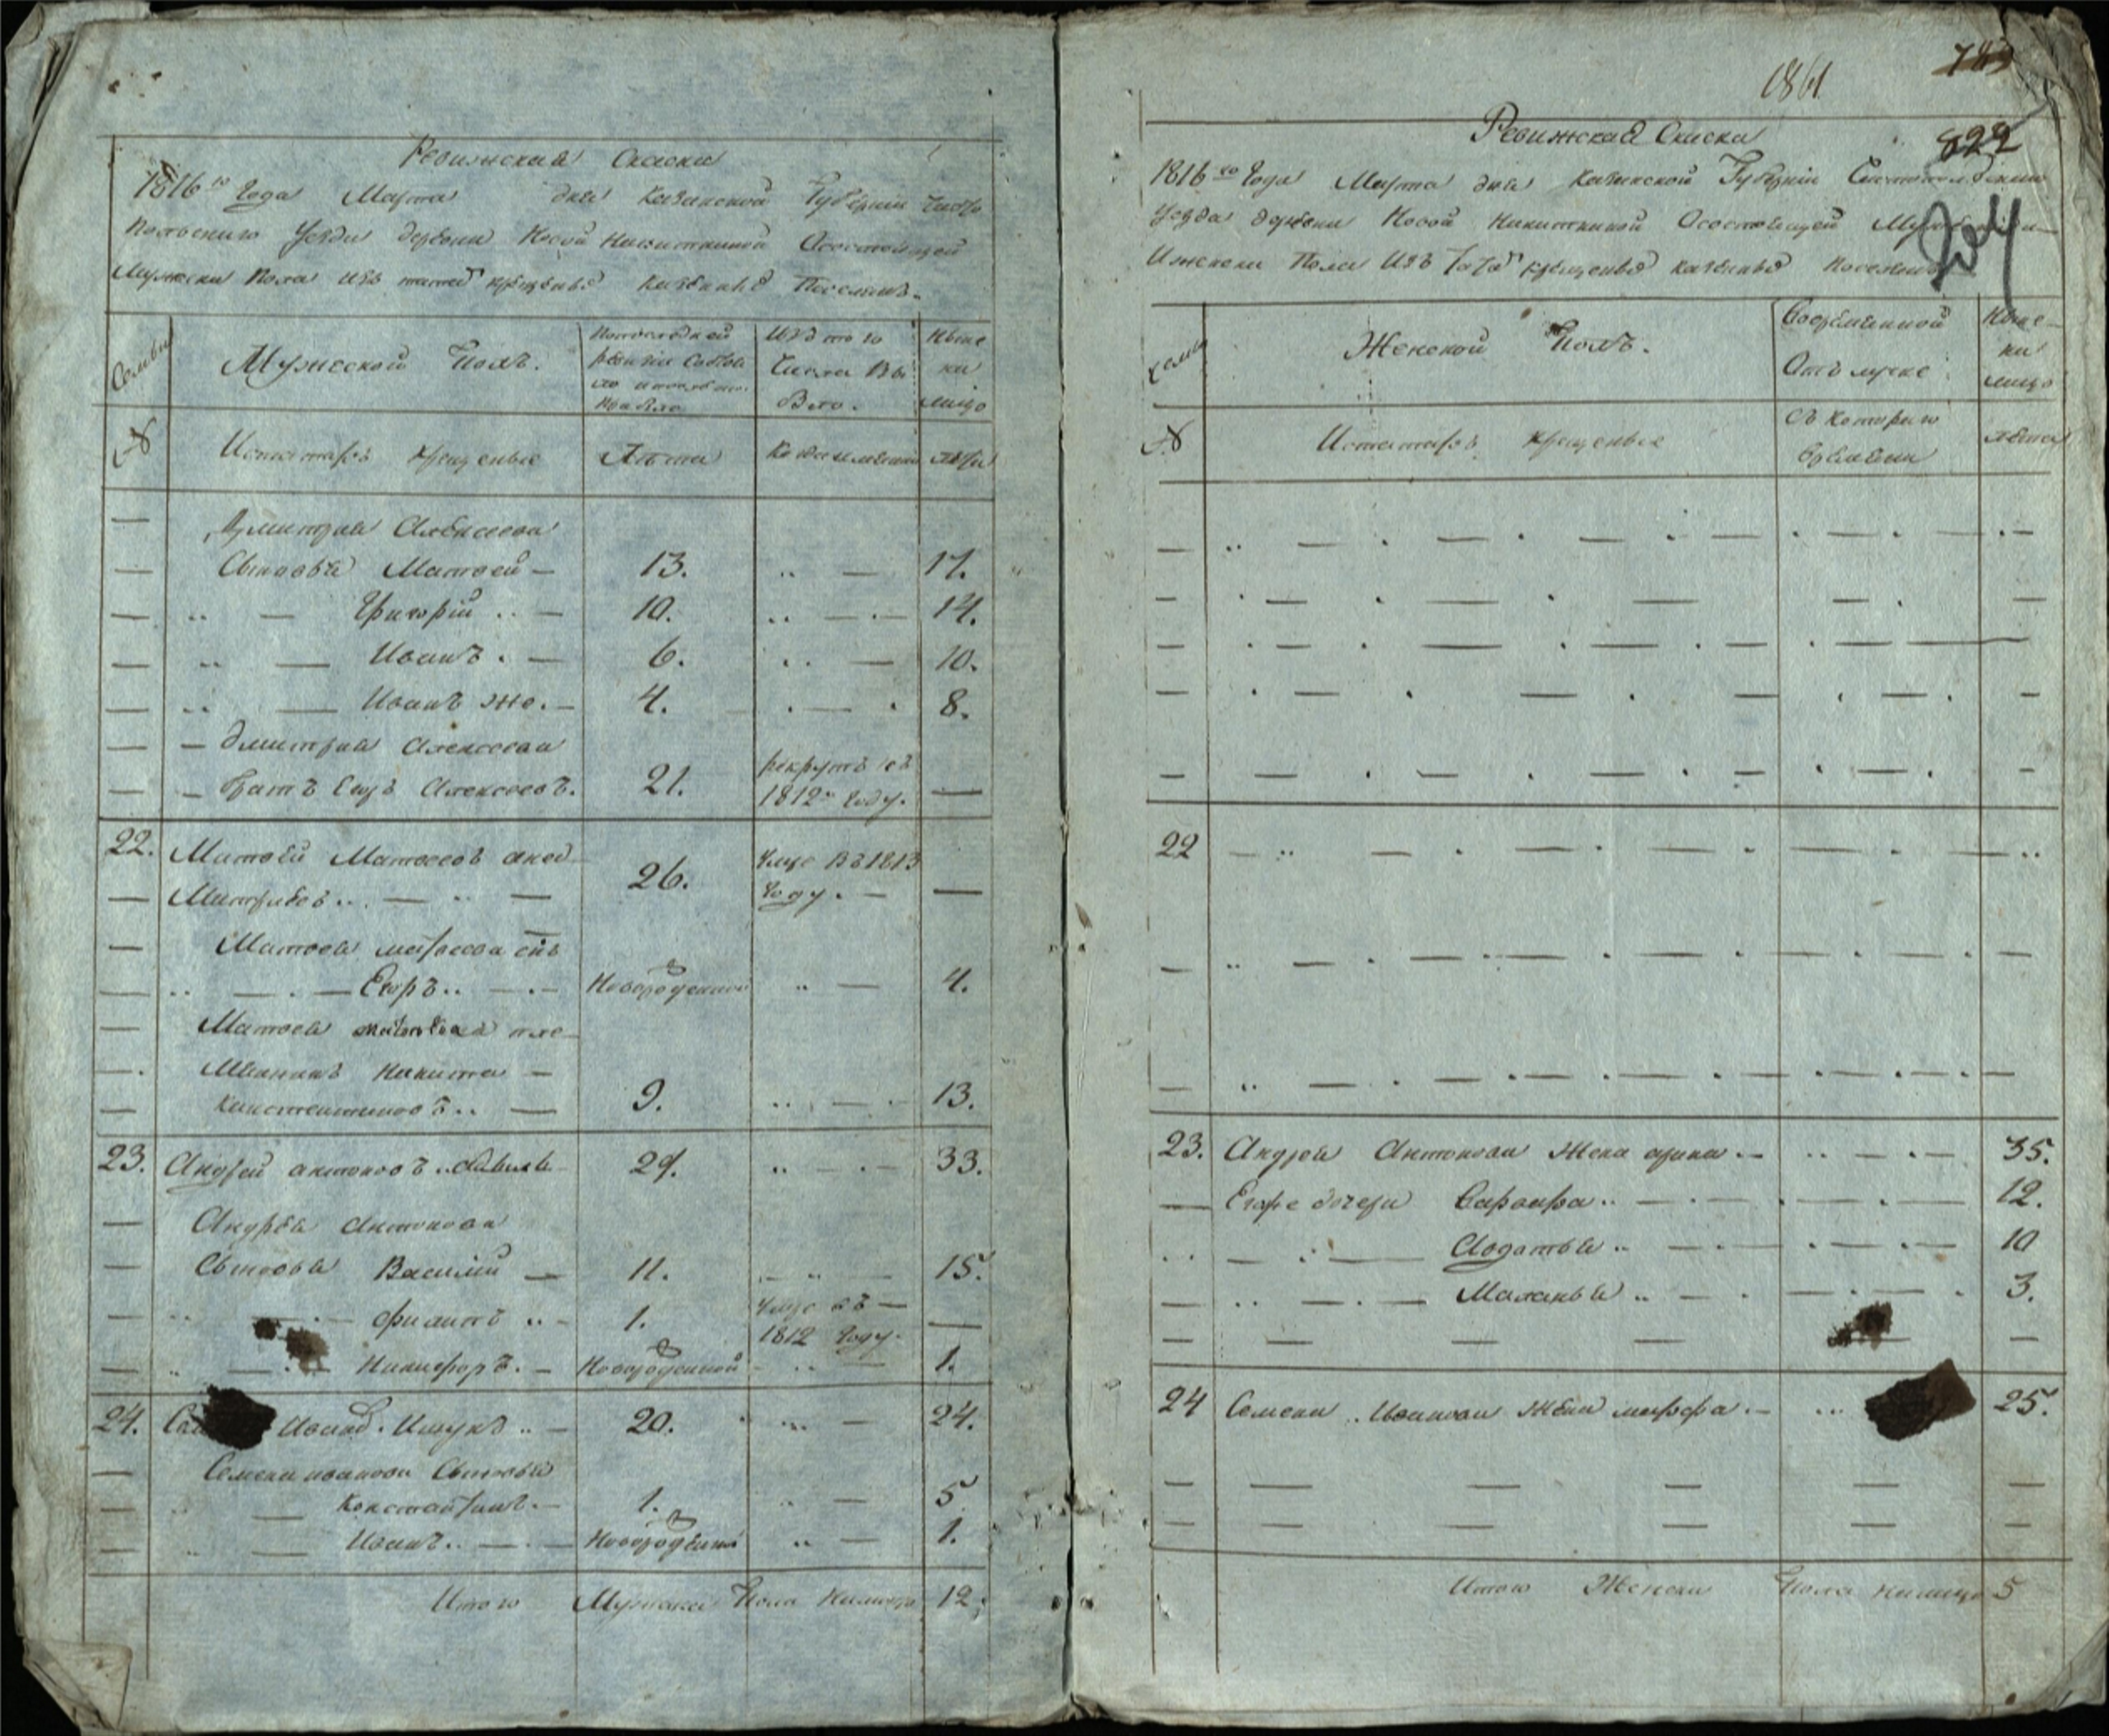 Ревижская Скаска
1816го Года Марта дня Казанской Губернии Чисто
Польскаго Уезда деревни Новой Никиткиной Осостоящей
Мужеска пола изъ татар крещеныхъ Поселянъ.
Семьи
Мужеской Полъ.
По последней ревизии состояло и после того прибыло
Изъ того числа выбыло.
Ныне на лицо
№
Изтатаръ крещеные
Лета
Лета
Дмитрия Алексеева
Сыновья Матвей — 13. 17.
Григорий — 10. 14.
Иванъ — 6. 10.
Иванъ же — 4. 8.
Дмитрия Алексеева
братъ Егоръ Алексеевъ. 21. рекрутъ въ
1812м году.
22. Матвей Матвеевъ 26. умре въ 1813
году.
Матвея Матвеева снъ
Егоръ Новорожденной 4.
Матвея Матвеева пле-
мянникъ Никита
Константиновъ 9. 13.
23. Андрей Антоновъ 29. 33.
Андрея Антонова
Сыновья Василий — 11. 15.
Филипъ 1. умре въ
1812 году.
Никифоръ. Новорожденной 1.
24. Иванов 20. 24.
Семена Иванова Сыновья
Константинъ. 1. 5
Иванъ Новорожденной 1.
Итого Мужеска Пола Налицо 12.
1861
743
822
204
Ревижская Скаска
1816го Года Марта дня Казанской Губернии
Уезда деревни Новой Никиткиной Осостоящей
Женска Пола Изъ татар крещеныхъ
семьи
Женской Полъ.
Во временной
Отлучке
Ныне
на
лицо
№
Изтатаръ крещеные
Съ котораго
времени
лета
22
23. Андрея Антонова Жена арина 35.
Егоже дочери Варвара 12.
Авдотья 10
Маланья 3.
24 Семена Иванова Жена марфа 25.
Итого Женска Пола налицо 5